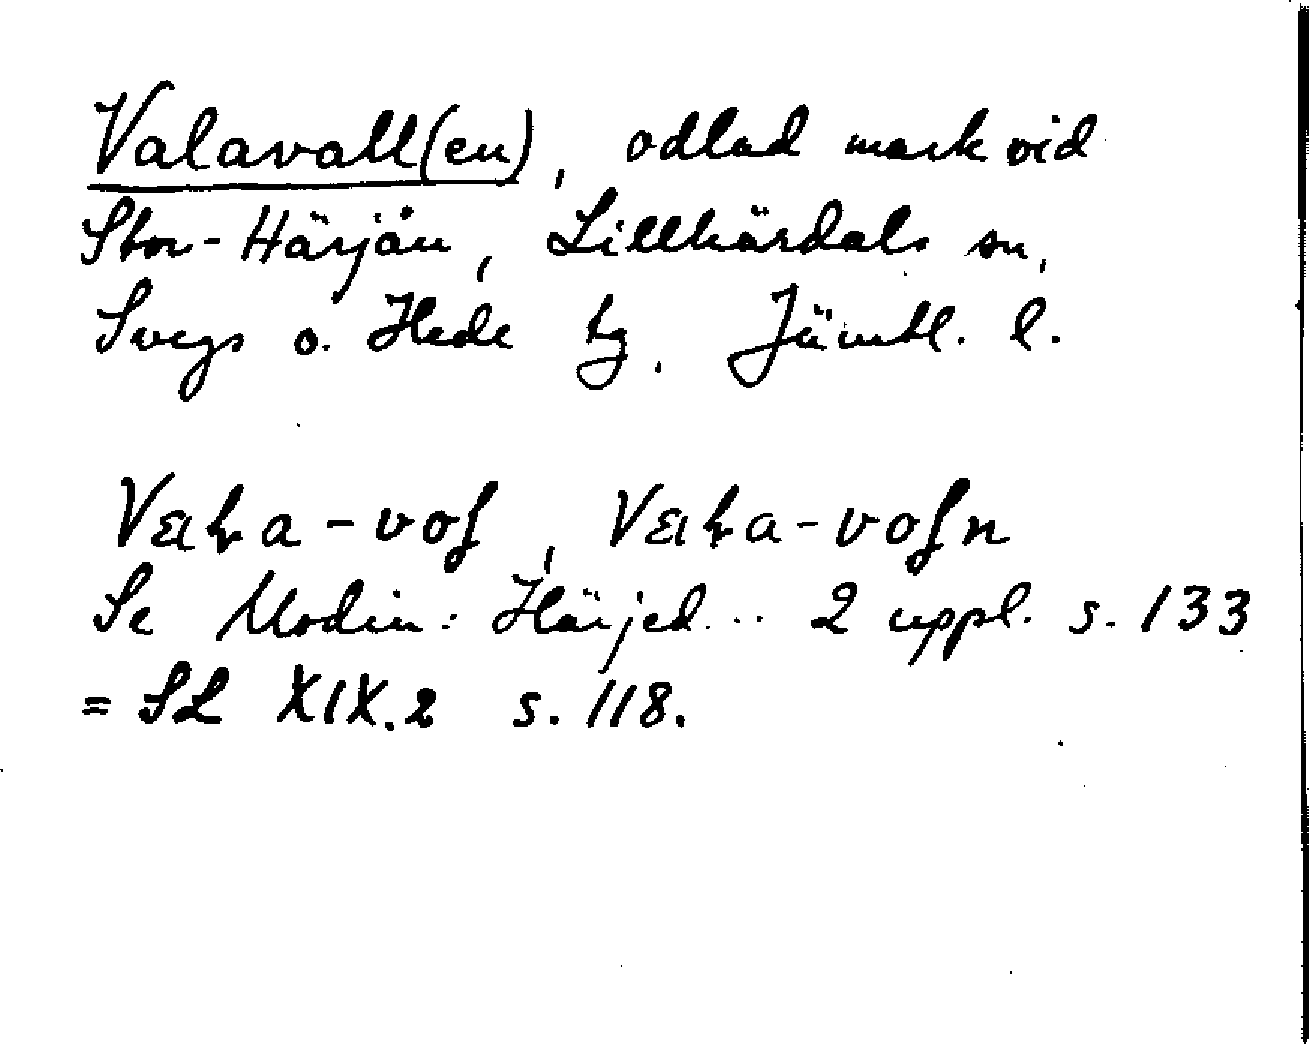 Valavall(en), odlad mark vid
Stor-Härjån, Lillhärdals sn,
Svegs o. Hede tg. Jämtl. l.
Se Modin: Härjed... 2 uppl. s. 133
= SL XIX.2 s. 118.